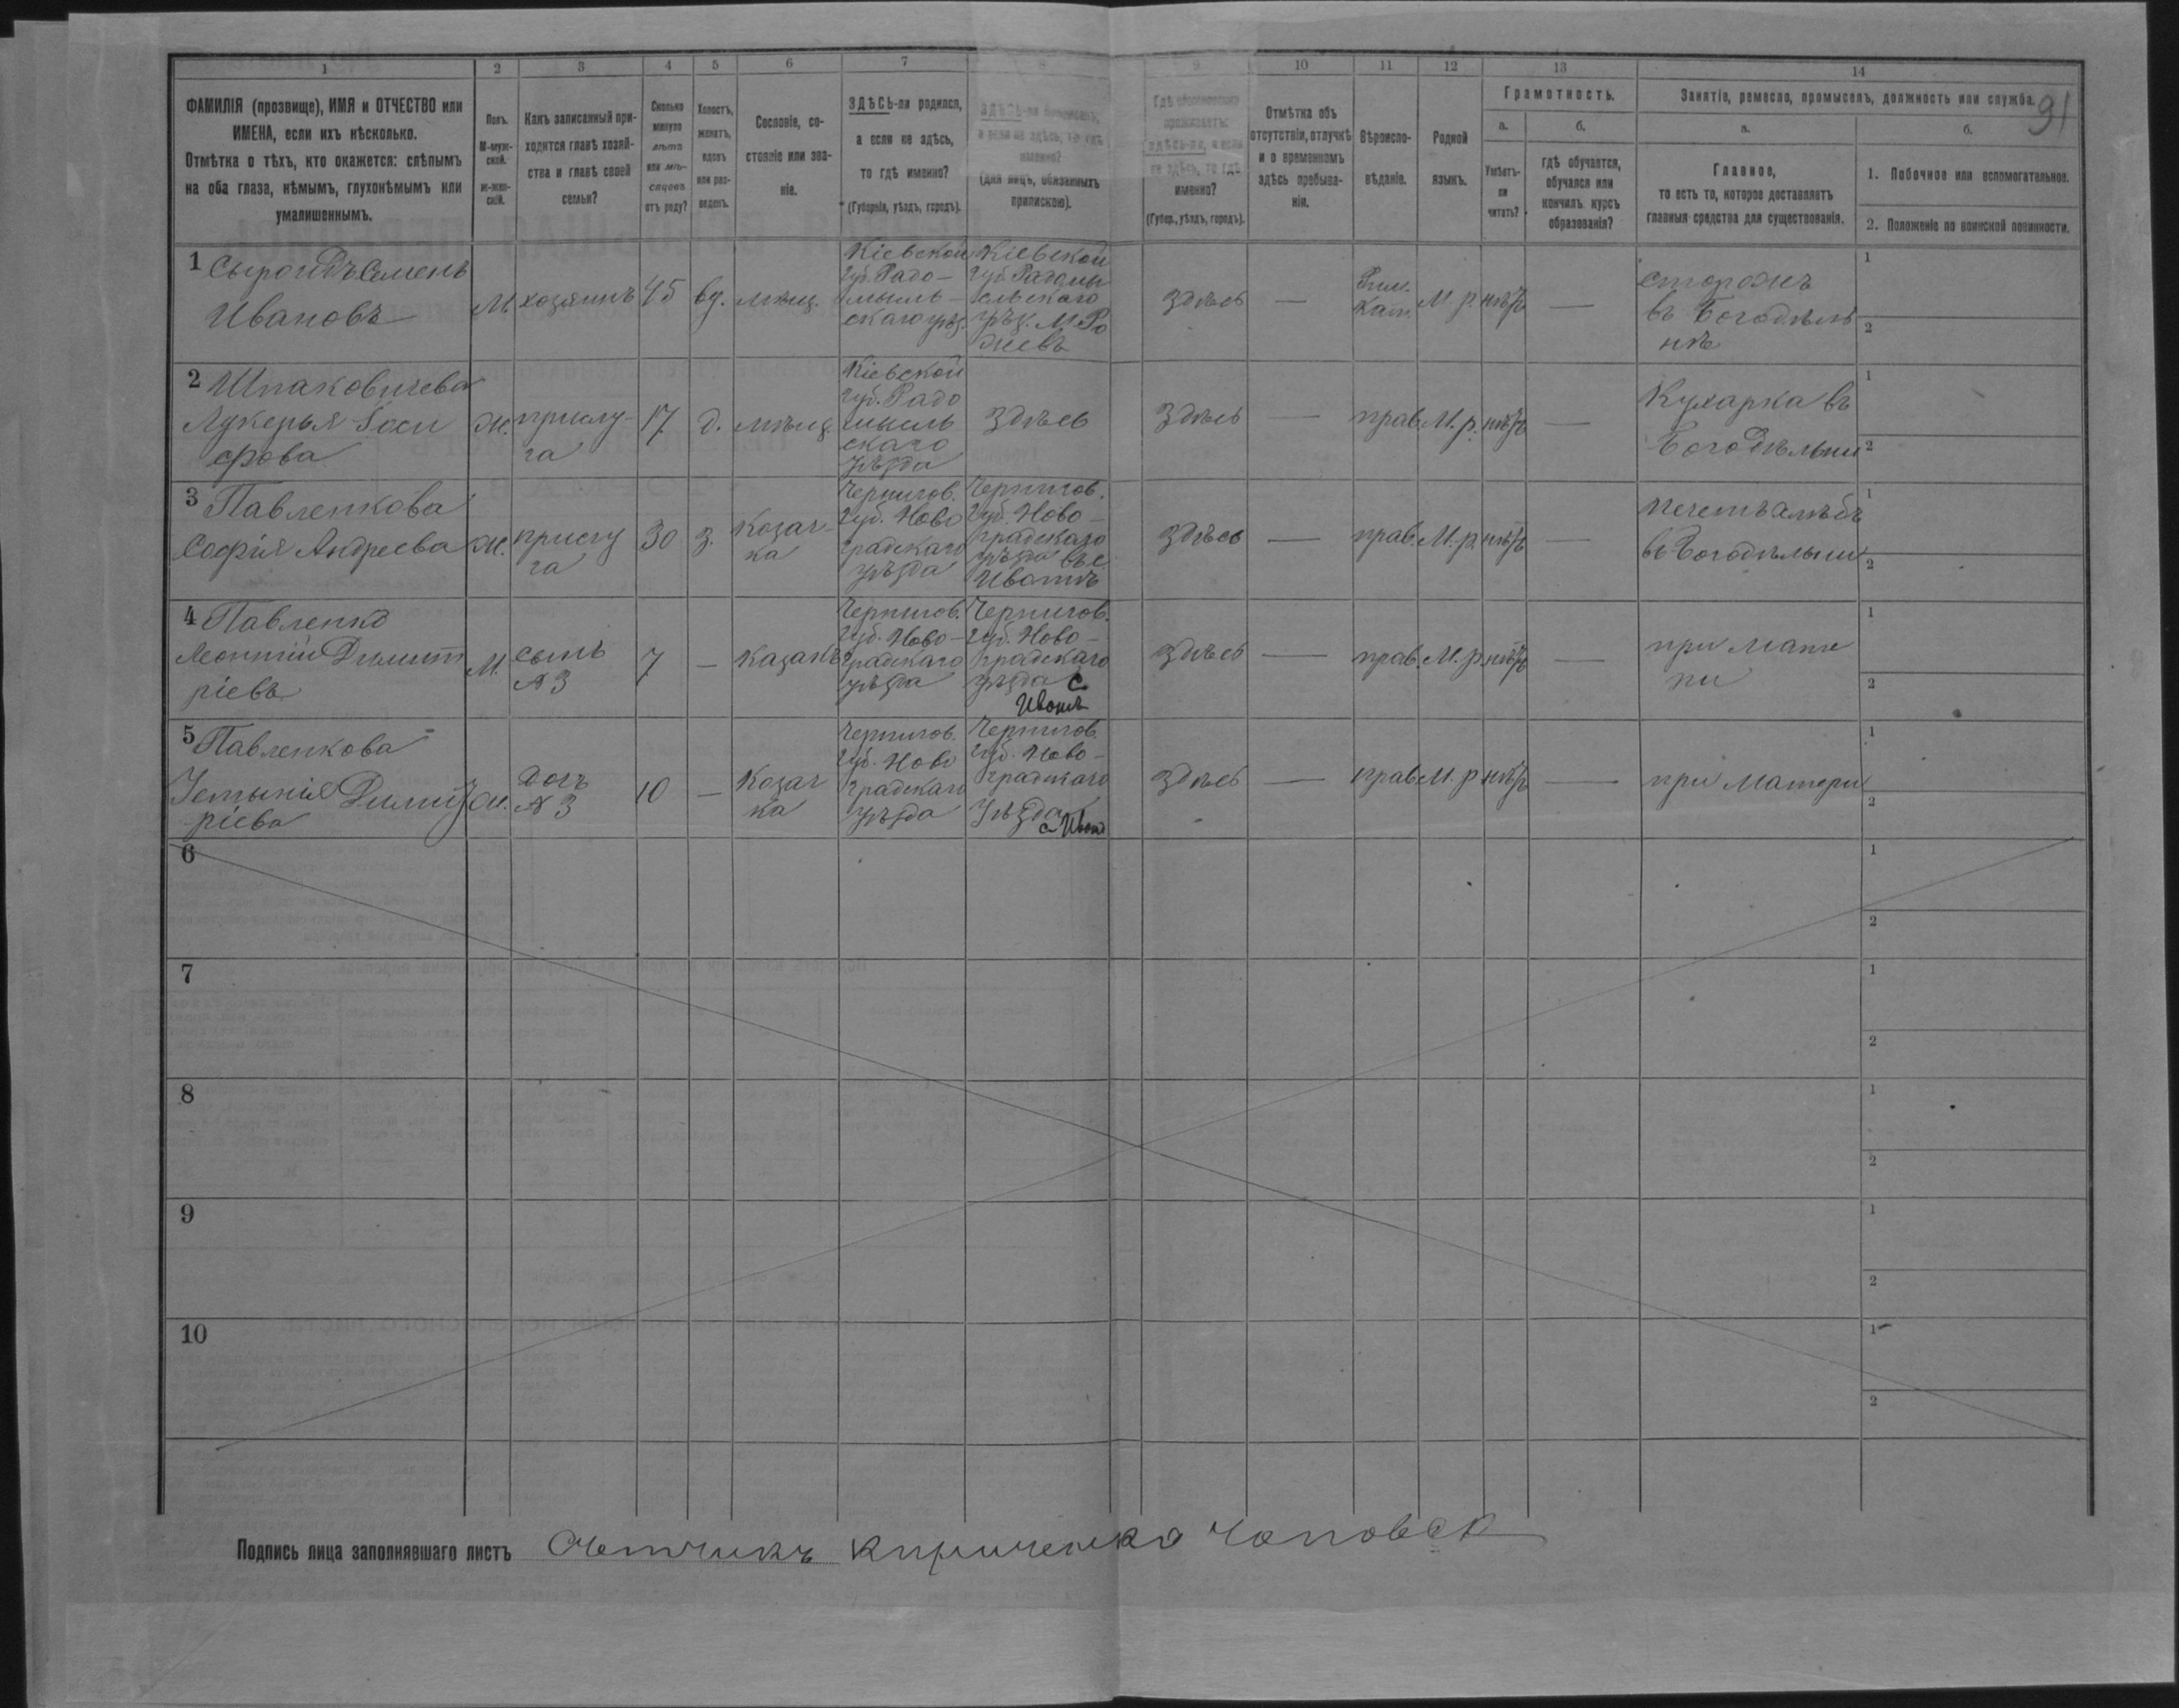 1 2 3 4 5 6 7 8 9 10 11 12 13 14
91
ФАМИЛІЯ (прозвище), ИМЯ и ОТЧЕСТВО или
ИМЕНА, если ихъ нѣсколько.
Отмѣтка о тѣхъ, кто окажется: слѣпымъ
на оба глаза, нѣмымъ, глухонѣмымъ или
умалишеннымъ.
Полъ.
М-муж-
ской.
ж-жен-
скій.
Какъ записанный при-
ходится главѣ хозяй-
ства и главѣ своей
семьи?
Сколько
минуло
лѣтъ
или мѣ-
сяцевъ
отъ роду?
Холостъ,
женатъ,
вдовъ
или раз-
веденъ.
Сословіе, со-
стояніе или зва-
ніе.
ЗДѢСЬ-ли родился,
а если не здѣсь,
то гдѣ именно?
(Губернія, уѣздъ, городъ).
ЗДѢСЬ-ли приписанъ,
а если не здѣсь, то гдѣ
именно?
(для лицъ, обязанныхъ
припискою).
Гдѣ обыкновенно
проживаетъ:
здѣсь-ли, а если
не здѣсь, то гдѣ
именно?
(Губер., уѣздъ, городъ).
Отмѣтка объ
отсутствіи, отлучкѣ
и о временномъ
здѣсь пребыва-
ніи.
Вѣроиспо-
вѣданіе.
Родной
языкъ.
Грамотность.
а.
Умѣетъ-
ли
читать?
б.
гдѣ обучается,
обучался или
кончилъ курсъ
образованія?
Занятіе, ремесло, промыселъ, должность или служба.
а.
Главное,
то есть то, которое доставляетъ
главныя средства для существованія.
б.
1. Побочное или вспомогательное.
2. Положеніе по воинской повинности.
1 Сыроидъ Семенъ
Ивановъ
М.
хозяинъ
45
вд.
мѣщ.
Кіевской
губ. Радо-
мысль-
скаго уѣз.
Кіевской
губ. Радомы
сльскаго
уѣз. М. Ро
жевъ
здѣсь
—
Рим.
Кат.
М. р.
нѣтъ
—
сторожъ
въ Богодѣль
нѣ
1
2
2 Шпаковичева
Лукерья Іоси
фова
Ж.
прислу-
га
17
д.
мѣщ.
Кіевской
губ. Радо
мысль
скаго
уѣзда
здѣсь
здѣсь
—
прав.
М. р.
нѣтъ
—
Кухарка въ
Богодѣльни
1
2
3 Павленкова
Софія Андреева
Ж.
прислу
га
30
з.
Козач-
ка
Чернигов.
губ. Ново
градскаго
уѣзда
Чернигов.
губ. Ново-
градскаго
уѣзда въ с.
Ивотъ
здѣсь
—
прав.
М. р.
нѣтъ
—
печетъ хлѣбъ
въ Богодѣльни
1
2
4 Павленко
Леонтій Димит
ріевъ
М.
сынъ
№ 3
7
—
Казакъ
Чернигов.
губ. Ново-
градскаго
уѣзда
Чернигов.
губ. Ново-
градскаго
уѣзда с.
Ивотъ
здѣсь
—
прав.
М. р.
нѣтъ
—
при мате
ри
1
2
5 Павленкова
Устинія Димит
ріева
Ж.
дочь
№ 3
10
—
Козач
ка
Чернигов.
губ. Ново
градскаго
уѣзда
Чернигов.
губ. Ново-
градскаго
Уѣзда
с Ивот
здѣсь
—
прав.
М. р.
нѣтъ
—
при матери
1
2
6
1
2
7
1
2
8
1
2
9
1
2
10
1
2
Подпись лица заполнявшаго листъ Счетчикъ Кириченко